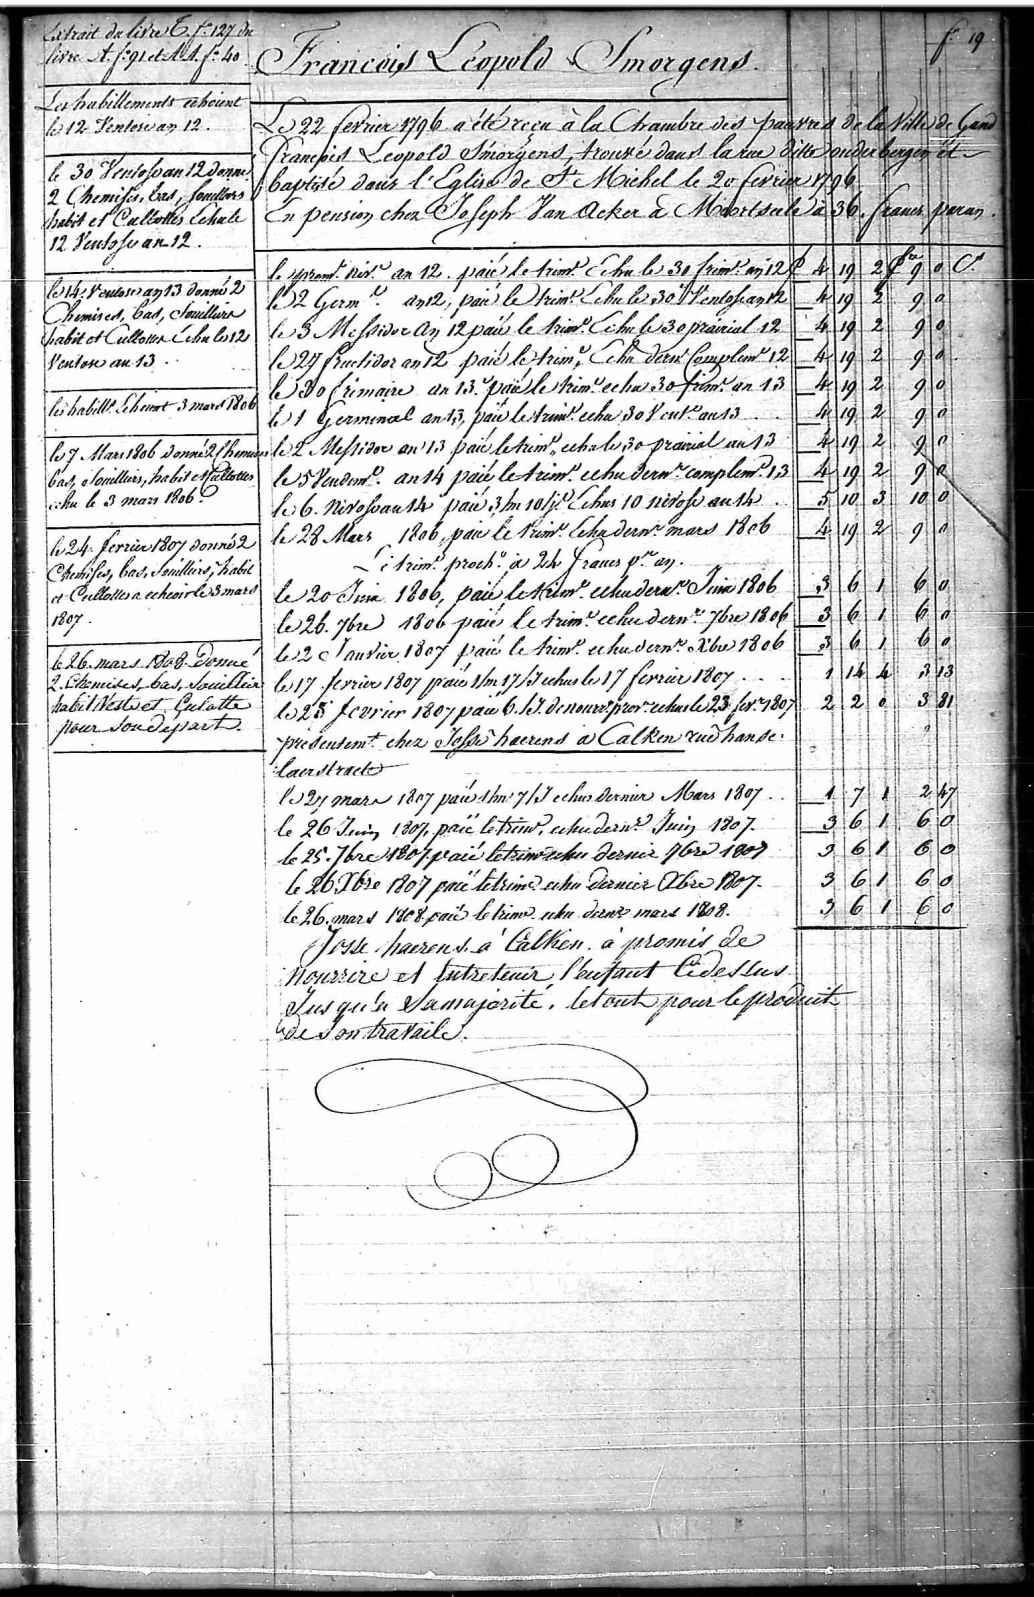 fo 19
Extrait du livre C. fo 127 du
livre A. fo 91 et AA. fo 40
Les habillements echoient
le 12 Ventose an 12.
le 30 Ventose an 12 donné
2 Chemises, bas, souilliers
habit et Culottes Echu le
12 Ventose an 12.
le 14 Ventose an 13 donné 2
Chemises, bas, Souilliers
habit et Culottes Echu le 12
Ventose an 13.
les habillts Echoient 3 mars 1806
le 7 Mars 1806 donné 2 Chemises
bas, Souilliers, habit et Culottes
echu le 3 mars 1806.
le 24 fevrier 1807 donné 2
Chemises, bas, Souilliers, habit
et Culottes a echeoir le 3 mars
1807.
le 26 mars 1808 Donné
2 Chemises, bas, Souilliers
habit Veste et Culotte
pour son départ.
Francois Léopold Smorgens.
Le 22 fevrier 1796 a été reçu à la Chambre des pauvres de la Ville de Gand
françois Leopold Smorgens, trouvé dans la rue ditte onderbergen et
baptisé dans l'Eglise de St Michel le 20 fevrier 1796
En pension chez Joseph Van Acker à Moortseele à 36. francs par an.
le premr Nive an 12. paié le trimr Echu le 30 frimr an 12 £ 4 19 2 fcs 9 0 Cs
le 2 Germl an 12, paié le trimr Echu le 30 Ventose an 12 4 19 2 9 0
le 3 Messidor an 12 paié le trimr Echu le 30 prairial 12 4 19 2 9 0
le 29 fructidor an 12 paié le trimr Echu dernr Complemr 12 4 19 2 9 0
le 30 frimaire an 13 paié le trimr echu 30 frimr an 13 4 19 2 9 0
le 1 Germinal an 13, paié le trimr echu 30 Vents an 13 . . 4 19 2 9 0
le 2 Messidor an 13 paié le trimr echu le 30 prairial an 13 4 19 2 9 0
le 5 Vendemr an 14 paié le trimr echu dernr complemr 13 4 19 2 9 0
le 6. Nivose an 14 paié 3/m 10/jrs Echus 10 nivose an 14 . . 5 10 3 10 0
le 28 Mars 1806, paié le trimr Echu dernr mars 1806 4 19 2 9 0
Le trimr prochn à 24 francs pr an.
le 20 Juin 1806, paié le trimr echu dernr Juin 1806 3 6 1 6 0
le 26. 7bre 1806 paié le trimr echu dernr 7bre 1806 3 6 1 6 0
le 2 Janvier 1807 paié le trimr echu dernr Xbre 1806 3 6 1 6 0
le 17 fevrier 1807 paié 1/m 17/J echus le 17 fevrier 1807 . . . 1 14 4 3 13
le 23 fevrier 1807 paié 6./J. de nourre provr echus le 23 fevr 1807 2 2 0 3 81
presentemt chez Josse haerens a Calken rue hanse-
laerstraete
le 27 mars 1807 paié 1/m 7/J echus dernier Mars 1807 . . 1 7 1 2 47
le 26 Juin 1807, paié le trimr echu dernr Juin 1807. 3 6 1 6 0
le 25. 7bre 1807 paié le trimr echu dernier 7bre 1807 3 6 1 6 0
le 26 Xbre 1807 paié le trimr echu dernier Xbre 1807. 3 6 1 6 0
le 26. mars 1808 paié le trimr echu dernr mars 1808. 3 6 1 6 0
Josse haerens à Calken à promis de
nourrire et Entretenir l'enfant Cidessus
Jusqu'a Sa majorité, le tout pour le produit
de son travaile.